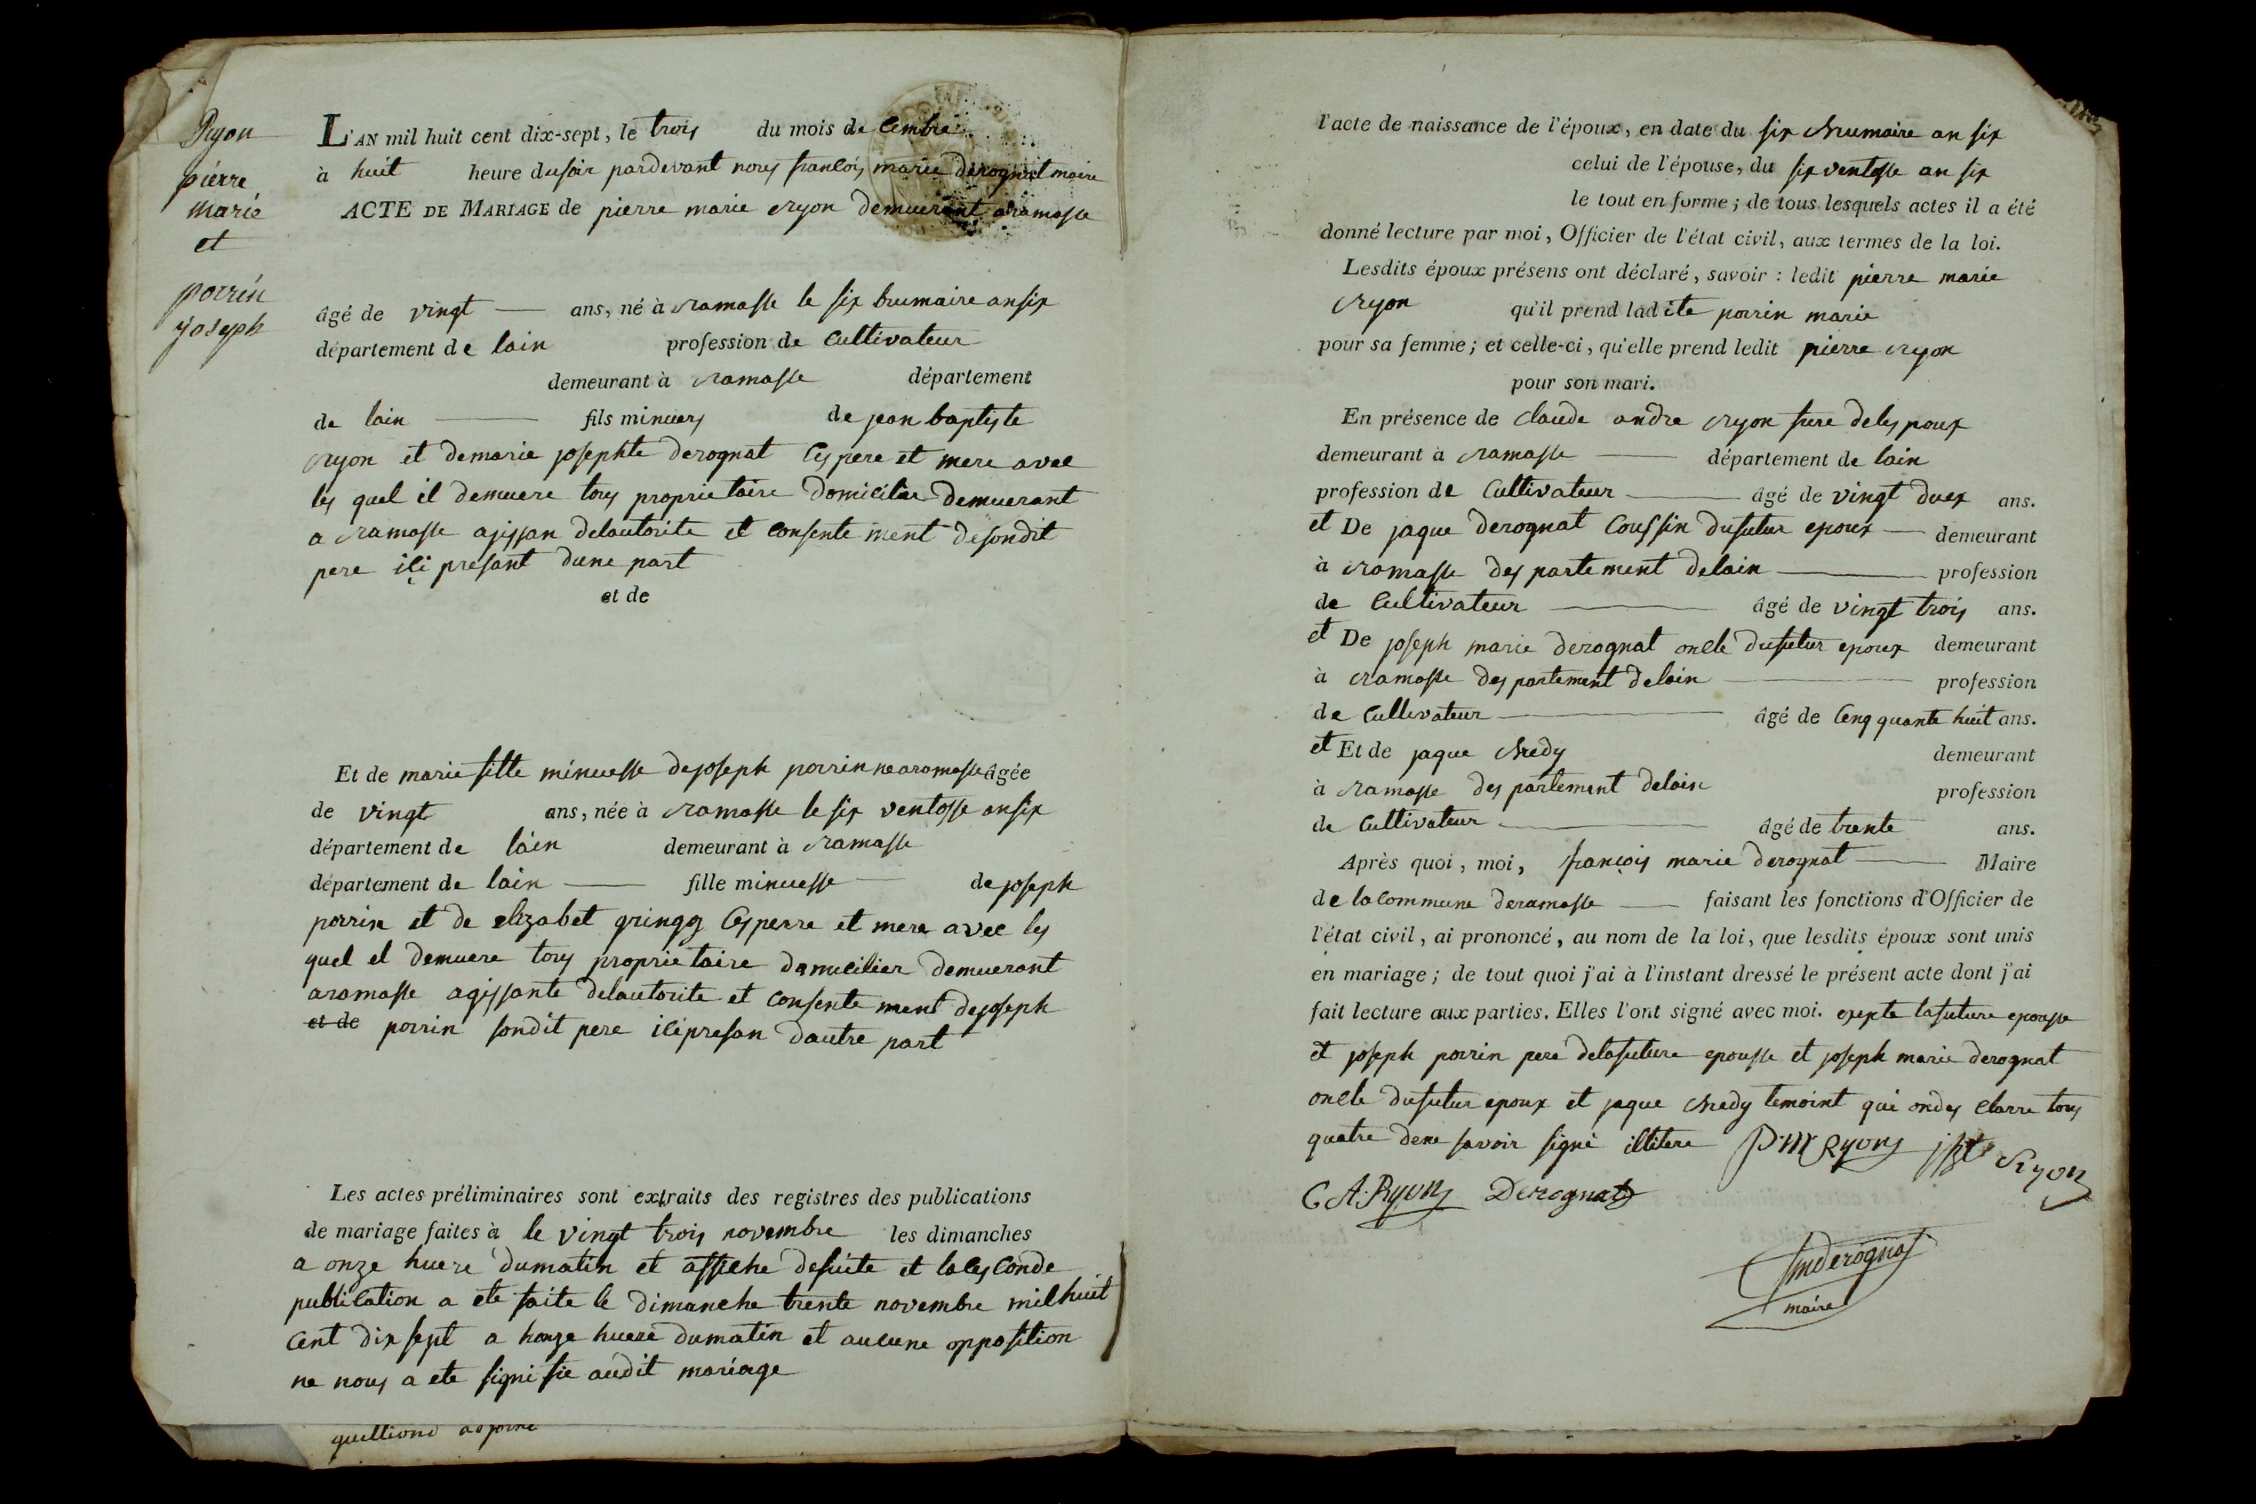 Ryon
pierre
marie
et
porrin
joseph
L'AN mil huit cent dix-sept, le trois du mois de Cembre
à huit heure dusoir pardevant nous francois marie derognat maire
ACTE DE MARIAGE de pierre marie ryon demuerant aramasse
âgé de vingt ans, né à ramasse le six brumaire ansix
département de lain profession de Cultivateur
demeurant à ramasse département
de lain fils minuers de jean baptiste
ryon et demarie josephte derognat Ces pere et mere avec
les quel il demuere tous proprietaire domicilie demuerant
a ramasse agissan delautorite et consente ment desondit
pere ici presant dune part
et de
Et de marie fille minuesse dejoseph porrin nearamasse âgée
de vingt ans, née à ramasse le six ventosse ansix
département de lain demeurant à ramasse
département de lain fille minuesse de joseph
porrin et de elizabet gringoz Ces perre et mere avec les
quel el demuere tous proprietaire domicilier demuerant
aramasse agissante delautorite et consente ment dejoseph
et de porrin sondit pere icipresan dautre part
Les actes préliminaires sont extraits des registres des publications
de mariage faites à le vingt trois novembre les dimanches
a onze huere dumatin et affiche desuite et lases Conde
publication a ete faite le dimanche trente novembre mil huit
cent dix sept a honze huere dumatin et aucune opposition
ne nous a ete signi fie audit mariage
l'acte de naissance de l'époux, en date du six brumaire an six
celui de l'épouse, du six ventosse an six
le tout en forme; de tous lesquels actes il a été
donné lecture par moi, Officier de l'état civil, aux termes de la loi.
Lesdits époux présens ont déclaré, savoir : ledit pierre marie
ryon qu'il prend ladite porrin marie
pour sa femme; et celle-ci, qu'elle prend ledit pierre ryon
pour son mari.
En présence de Claude andre ryon frere deles poux
demeurant à ramasse département de lain
profession de Cultivateur âgé de vingt duex ans.
et De jaque derognat Coussin dufutur epoux demeurant
à ramasse des partement delain profession
de Cultivateur âgé de vingt trois ans.
et De joseph marie derognat oncle dufutur epoux demeurant
à ramasse des partement delain profession
de Cultivateur âgé de Cenq quante huit ans.
et Et de jaque bredy demeurant
à ramasse des partement delain profession
de Cultivateur âgé de trente ans.
Après quoi, moi, françois marie derognat Maire
de la Commune deramasse faisant les fonctions d'Officier de
l'état civil, ai prononcé, au nom de la loi, que lesdits époux sont unis
en mariage; de tout quoi j'ai à l'instant dressé le présent acte dont j'ai
fait lecture aux parties. Elles l'ont signé avec moi. exepte lafuture epousse
et joseph porrin pere delafuture epousse et joseph marie derognat
oncle dufutur epoux et jaque bredy temoint qui ondes Clarre tous
quatre dene savoir signé illitere P M Ryon jbt Ryon
C A Ryon Derognat
fmderognat
maire